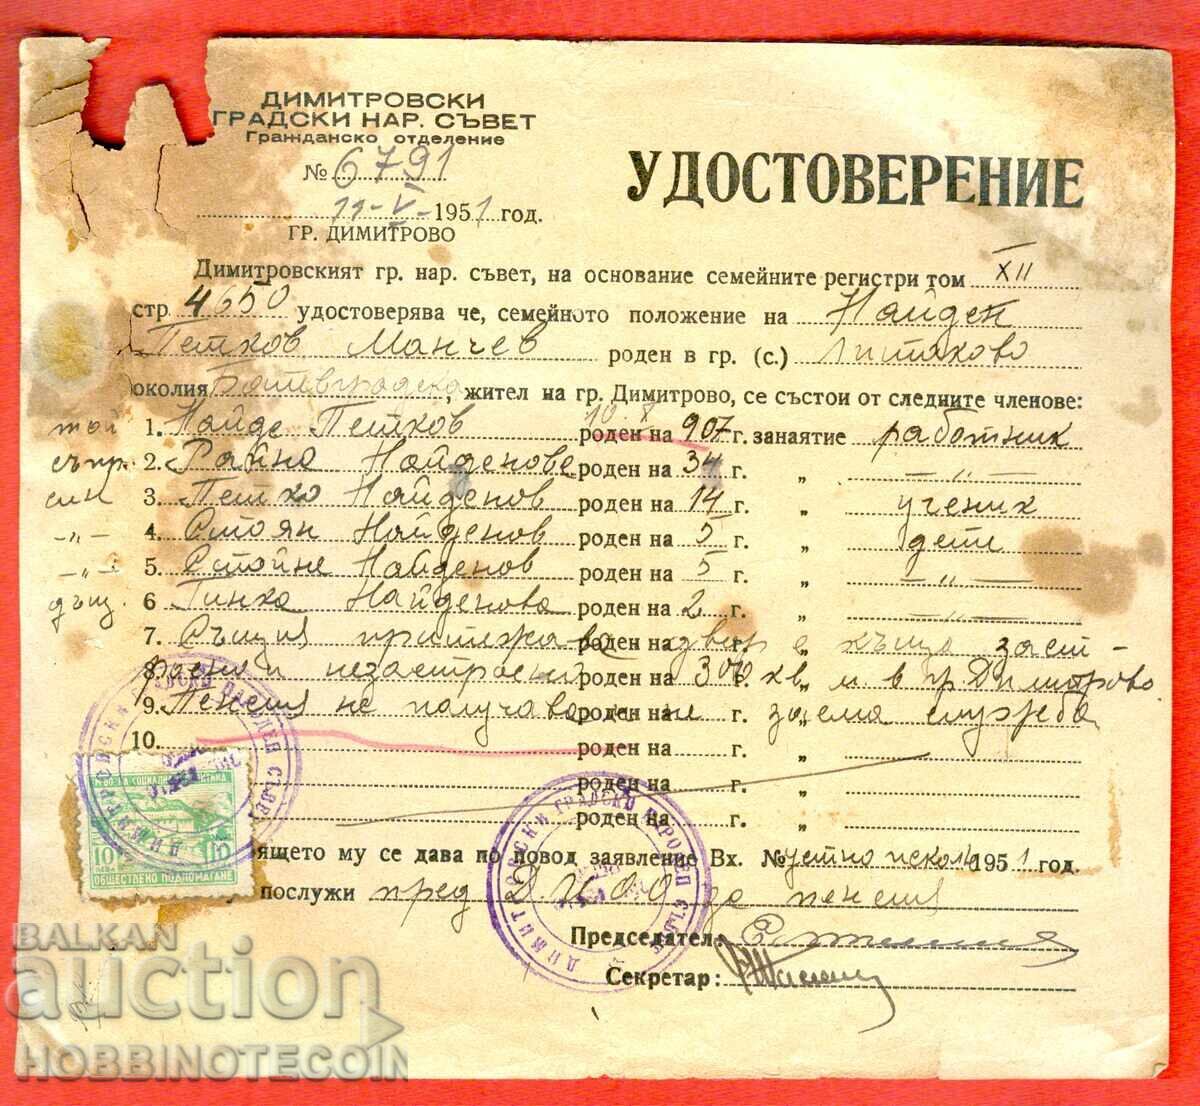 ДИМИТРОВСКИ
ГРАДСКИ НАР. СЪВЕТ
Гражданско отделение
№ 6791
11-V-1951 год.
ГР. ДИМИТРОВО
УДОСТОВЕРЕНИЕ
Димитровският гр. нар. съвет, на основание семейните регистри том XII
стр 4650 удостоверява че, семейното положение на Найден
Петков Манчев роден в гр. (с.) Литаково
околия Ботевградска, жител на гр. Димитрово, се състои от следните членове:
той 1. Найде Петков роден на 10.X 907 г. занаятие работник
съпр. 2. Райна Найденова роден на 34 г. „ —„—
син 3. Петко Найденов роден на 14 г. „ ученик
-„- 4. Стоян Найденов роден на 5 г. „ дете
-„- 5. Стойне Найденов роден на 5 г. „ —„—
дъщ. 6 Гинка Найденова роден на 2 г. „ —„—
7. Същия притежава роден на двор с г. „ къща заст-
8. роено и незастроено роден на 300 кв. м. в гр. Димитрово
9. Пенсия не получава роден на и не г. „ заема служба
10. роден на г. „
роден на г. „
роден на г. „
ящето му се дава по повод заявление Вх. № устно искане 1951 год.
послужи пред ДИОО за пенсия
Председател:
Секретар:
ДИМИТРОВСКИ ГРАДСКИ НАРОДЕН СЪВЕТ
ДИМИТРОВСКИ ГРАДСКИ НАРОДЕН СЪВЕТ
М-ВО ЗА СОЦИАЛНА ПОЛИТИКА
10 ЛЕВА 10
ОБЩЕСТВЕНО ПОДПОМАГАНЕ
BALKAN
auction
HOBBINOTECOIN